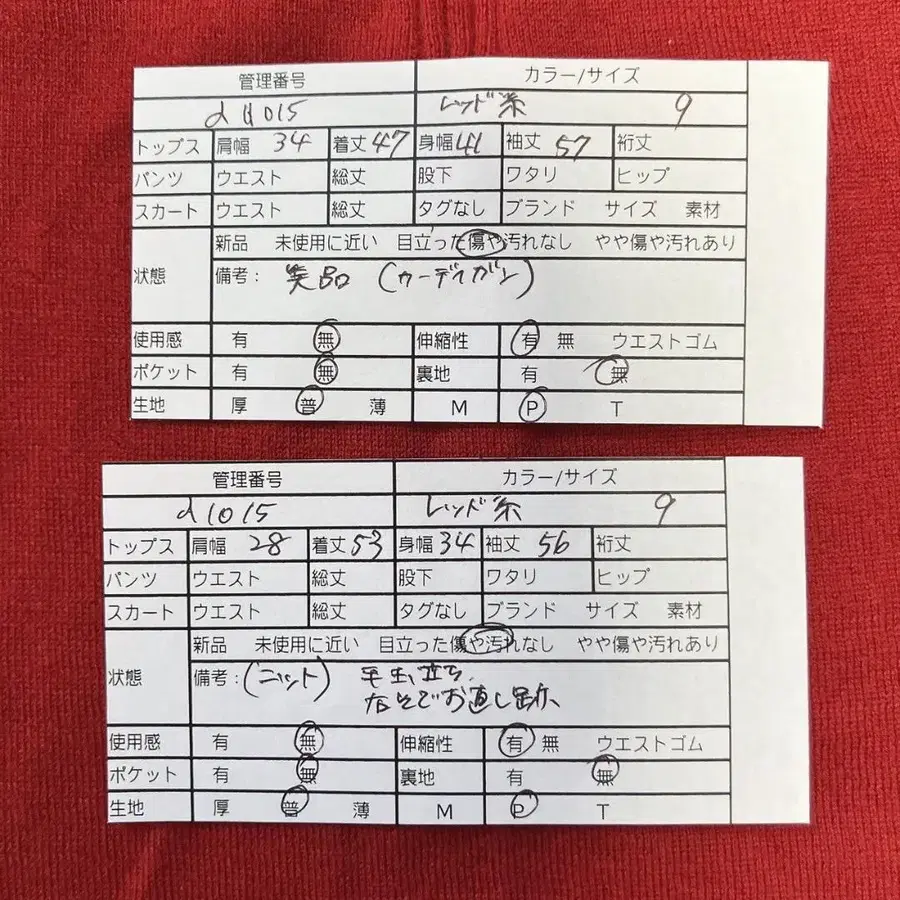 管理番号 カラー/サイズ
d1015 レッド系 9
トップス 肩幅 34 着丈 47 身幅 41 袖丈 57 裄丈
パンツ ウエスト 総丈 股下 ワタリ ヒップ
スカート ウエスト 総丈 タグなし ブランド サイズ 素材
新品 未使用に近い 目立った傷や汚れなし やや傷や汚れあり
状態 備考: 美品 (カーディガン)
使用感 有 無 伸縮性 有 無 ウエストゴム
ポケット 有 無 裏地 有 無
生地 厚 普 薄 M P T
管理番号 カラー/サイズ
d1015 レッド系 9
トップス 肩幅 28 着丈 53 身幅 34 袖丈 56 裄丈
パンツ ウエスト 総丈 股下 ワタリ ヒップ
スカート ウエスト 総丈 タグなし ブランド サイズ 素材
新品 未使用に近い 目立った傷や汚れなし やや傷や汚れあり
状態 備考: (ニット) 毛玉、立ち、
でお直し跡、
使用感 有 無 伸縮性 有 無 ウエストゴム
ポケット 有 無 裏地 有 無
生地 厚 普 薄 M P T